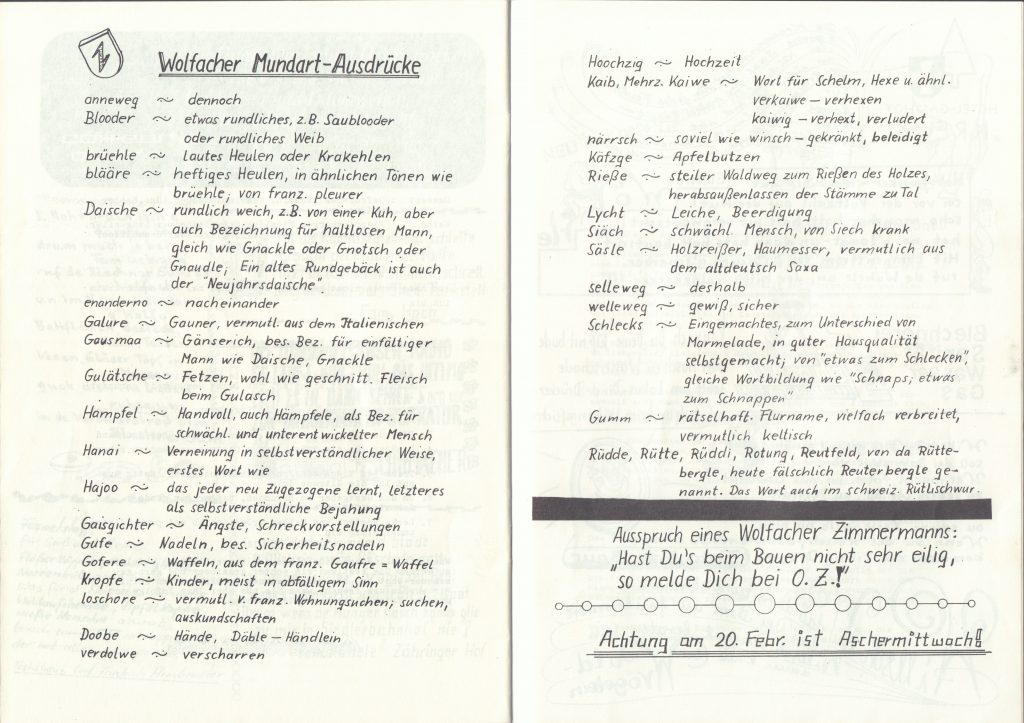 Wolfacher Mundart-Ausdrücke
anneweg ~ dennoch
Blooder ~ etwas rundliches, z.B. Saublooder
oder rundliches Weib
brüehle ~ lautes Heulen oder Krakehlen
blääre ~ heftiges Heulen, in ähnlichen Tönen wie
brüehle; von franz. pleurer
Daische ~ rundlich weich, z.B. von einer Kuh, aber
auch Bezeichnung für haltlosen Mann,
gleich wie Gnackle oder Gnotsch oder
Gnaudle; Ein altes Rundgebäck ist auch
der "Neujahrsdaische".
enanderno ~ nacheinander
Galure ~ Gauner, vermutl. aus dem Italienischen
Gausmaa ~ Gänserich, bes. Bez. für einfältiger
Mann wie Daische, Gnackle
Gulätsche ~ Fetzen, wohl wie geschnitt. Fleisch
beim Gulasch
Hampfel ~ Handvoll, auch Hämpfele, als Bez. für
schwächl. und unterentwickelter Mensch
Hanai ~ Verneinung in selbstverständlicher Weise,
erstes Wort wie
Hajoo ~ das jeder neu Zugezogene lernt, letzteres
als selbstverständliche Bejahung
Gaisgichter ~ Ängste, Schreckvorstellungen
Gufe ~ Nadeln, bes. Sicherheitsnadeln
Gofere ~ Waffeln, aus dem franz. Gaufre = Waffel
Kropfe ~ Kinder, meist in abfälligem Sinn
loschore ~ vermutl. v. franz. Wohnungsuchen; suchen,
auskundschaften
Doobe ~ Hände, Däble – Händlein
verdolwe ~ verscharren
Hoochzig ~ Hochzeit
Kaib, Mehrz. Kaiwe ~ Wort für Schelm, Hexe u. ähnl.
verkaiwe – verhexen
kaiwig – verhext, verludert
närrsch ~ soviel wie winsch – gekränkt, beleidigt
Käfzge ~ Apfelbutzen
Rieße ~ steiler Waldweg zum Rießen des Holzes,
herabsaußenlassen der Stämme zu Tal
Lycht ~ Leiche, Beerdigung
Siäch ~ schwächl. Mensch, von Siech krank
Säsle ~ Holzreißer, Haumesser, vermutlich aus
dem altdeutsch Saxa
selleweg ~ deshalb
welleweg ~ gewiß, sicher
Schlecks ~ Eingemachtes, zum Unterschied von
Marmelade, in guter Hausqualität
selbstgemacht; von "etwas zum Schlecken",
gleiche Wortbildung wie "Schnaps; etwas
zum Schnappen"
Gumm ~ rätselhaft. Flurname, vielfach verbreitet,
vermutlich keltisch
Rüdde, Rütte, Rüddi, Rotung, Reutfeld, von da Rütte-
bergle, heute fälschlich Reuterbergle ge-
nannt. Das Wort auch im schweiz. Rütlischwur.
Ausspruch eines Wolfacher Zimmermanns:
„Hast Du's beim Bauen nicht sehr eilig,
so melde Dich bei O. Z.!"
Achtung am 20. Febr. ist Aschermittwoch!